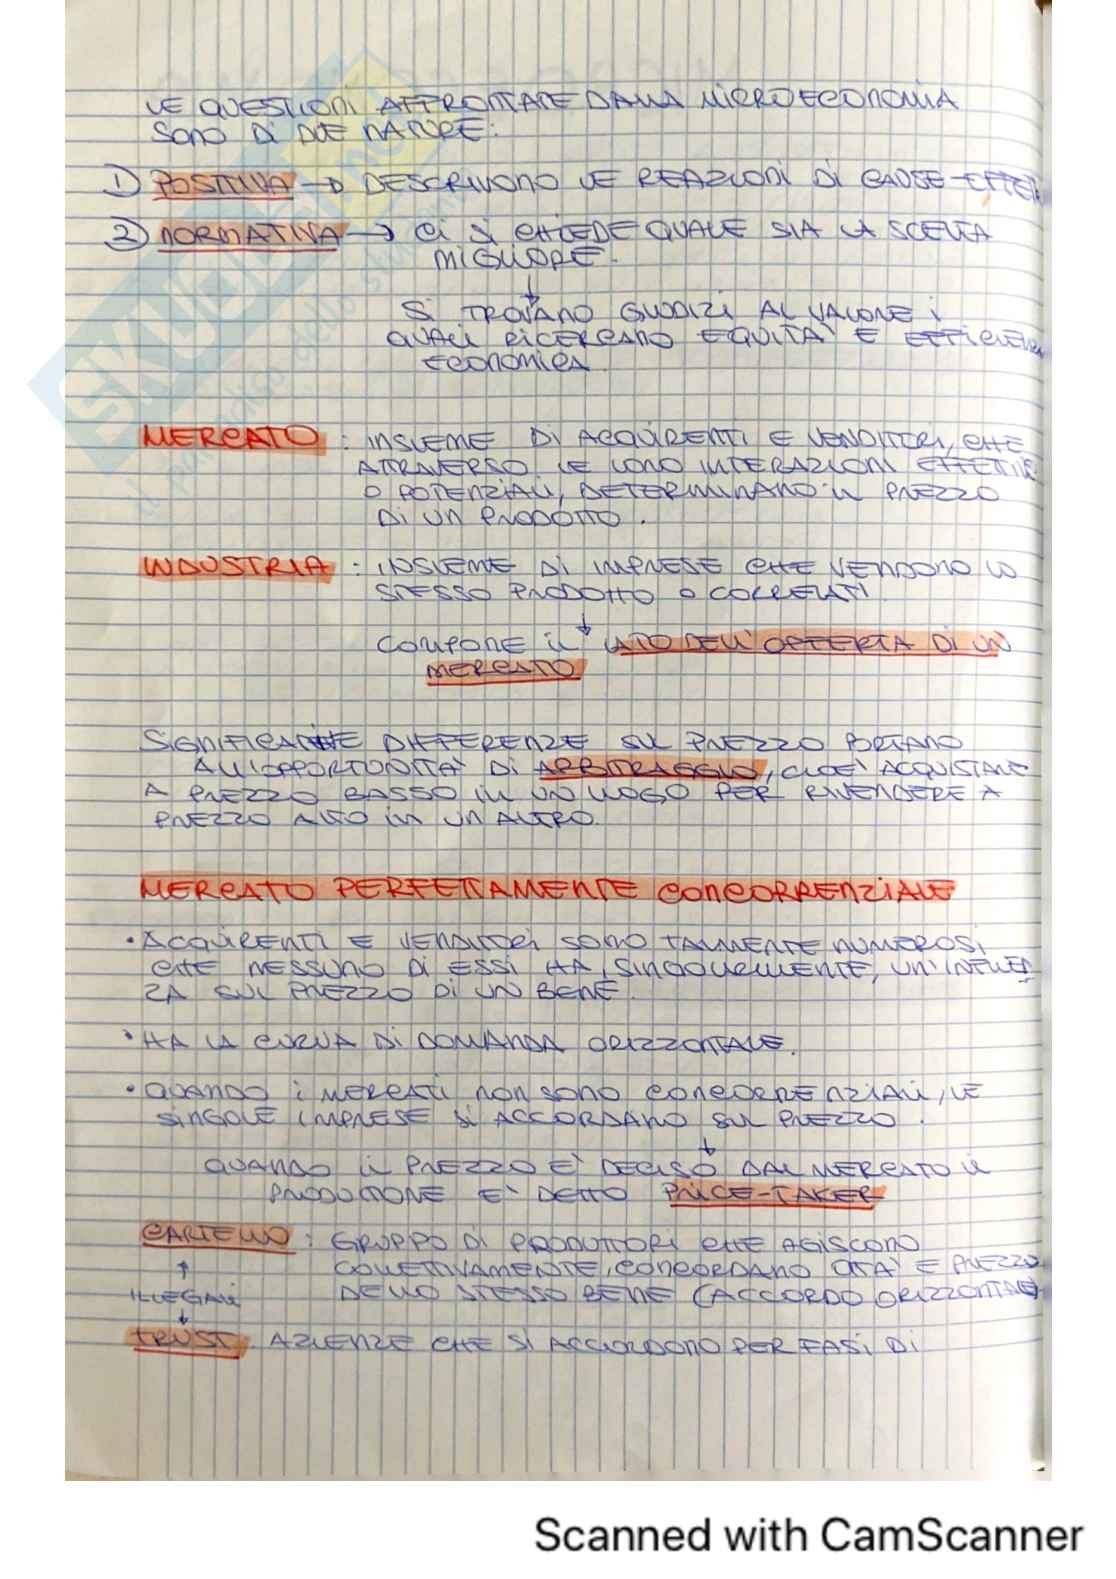 LE QUESTIONI AFFRONTATE DALLA MICROECONOMIA
SONO DI DUE NATURE:
1) POSITIVA → DESCRIVONO LE REAZIONI DI CAUSE-EFFETTI
2) NORMATIVA → CI SI CHIEDE QUALE SIA LA SCELTA
MIGLIORE.
↓
SI TROVANO GIUDIZI AL VALORE I
QUALI RICERCANO EQUITÀ E EFFICIENZA
ECONOMICA.
MERCATO: INSIEME DI ACQUIRENTI E VENDITORI, CHE
ATTRAVERSO LE LORO INTERAZIONI EFFETTIVE
O POTENZIALI, DETERMINANO IL PREZZO
DI UN PRODOTTO.
INDUSTRIA: INSIEME DI IMPRESE CHE VENDONO LO
STESSO PRODOTTO O CORRELATI.
↓
COMPONE IL LATO DELL'OFFERTA DI UN
MERCATO
SIGNIFICANTE DIFFERENZE SUL PREZZO PORTANO
ALL'OPPORTUNITÀ DI ARBITRAGGIO, CIOÈ ACQUISTARE
A PREZZO BASSO IN UN LUOGO PER RIVENDERE A
PREZZO ALTO IN UN ALTRO.
MERCATO PERFETTAMENTE CONCORRENZIALE
• ACQUIRENTI E VENDITORI SONO TALMENTE NUMEROSI
CHE NESSUNO DI ESSI HA, SINGOLARMENTE, UN'INFLUEN
ZA SUL PREZZO DI UN BENE.
• HA LA CURVA DI DOMANDA ORIZZONTALE.
• QUANDO I MERCATI NON SONO CONCORRENZIALI, LE
SINGOLE IMPRESE SI ACCORDANO SUL PREZZO.
↓
QUANDO IL PREZZO E' DECISO DAL MERCATO IL
PRODUTTORE E' DETTO PRICE-TAKER
CARTELLO: GRUPPO DI PRODUTTORI CHE AGISCONO
↑ COLLETTIVAMENTE, CONCORDANO QTÀ E PREZZO
ILLEGALI DELLO STESSO BENE (ACCORDO ORIZZONTALE)
↓
TRUST: AZIENZE CHE SI ACCORDONO PER FASI DI
Scanned with CamScanner